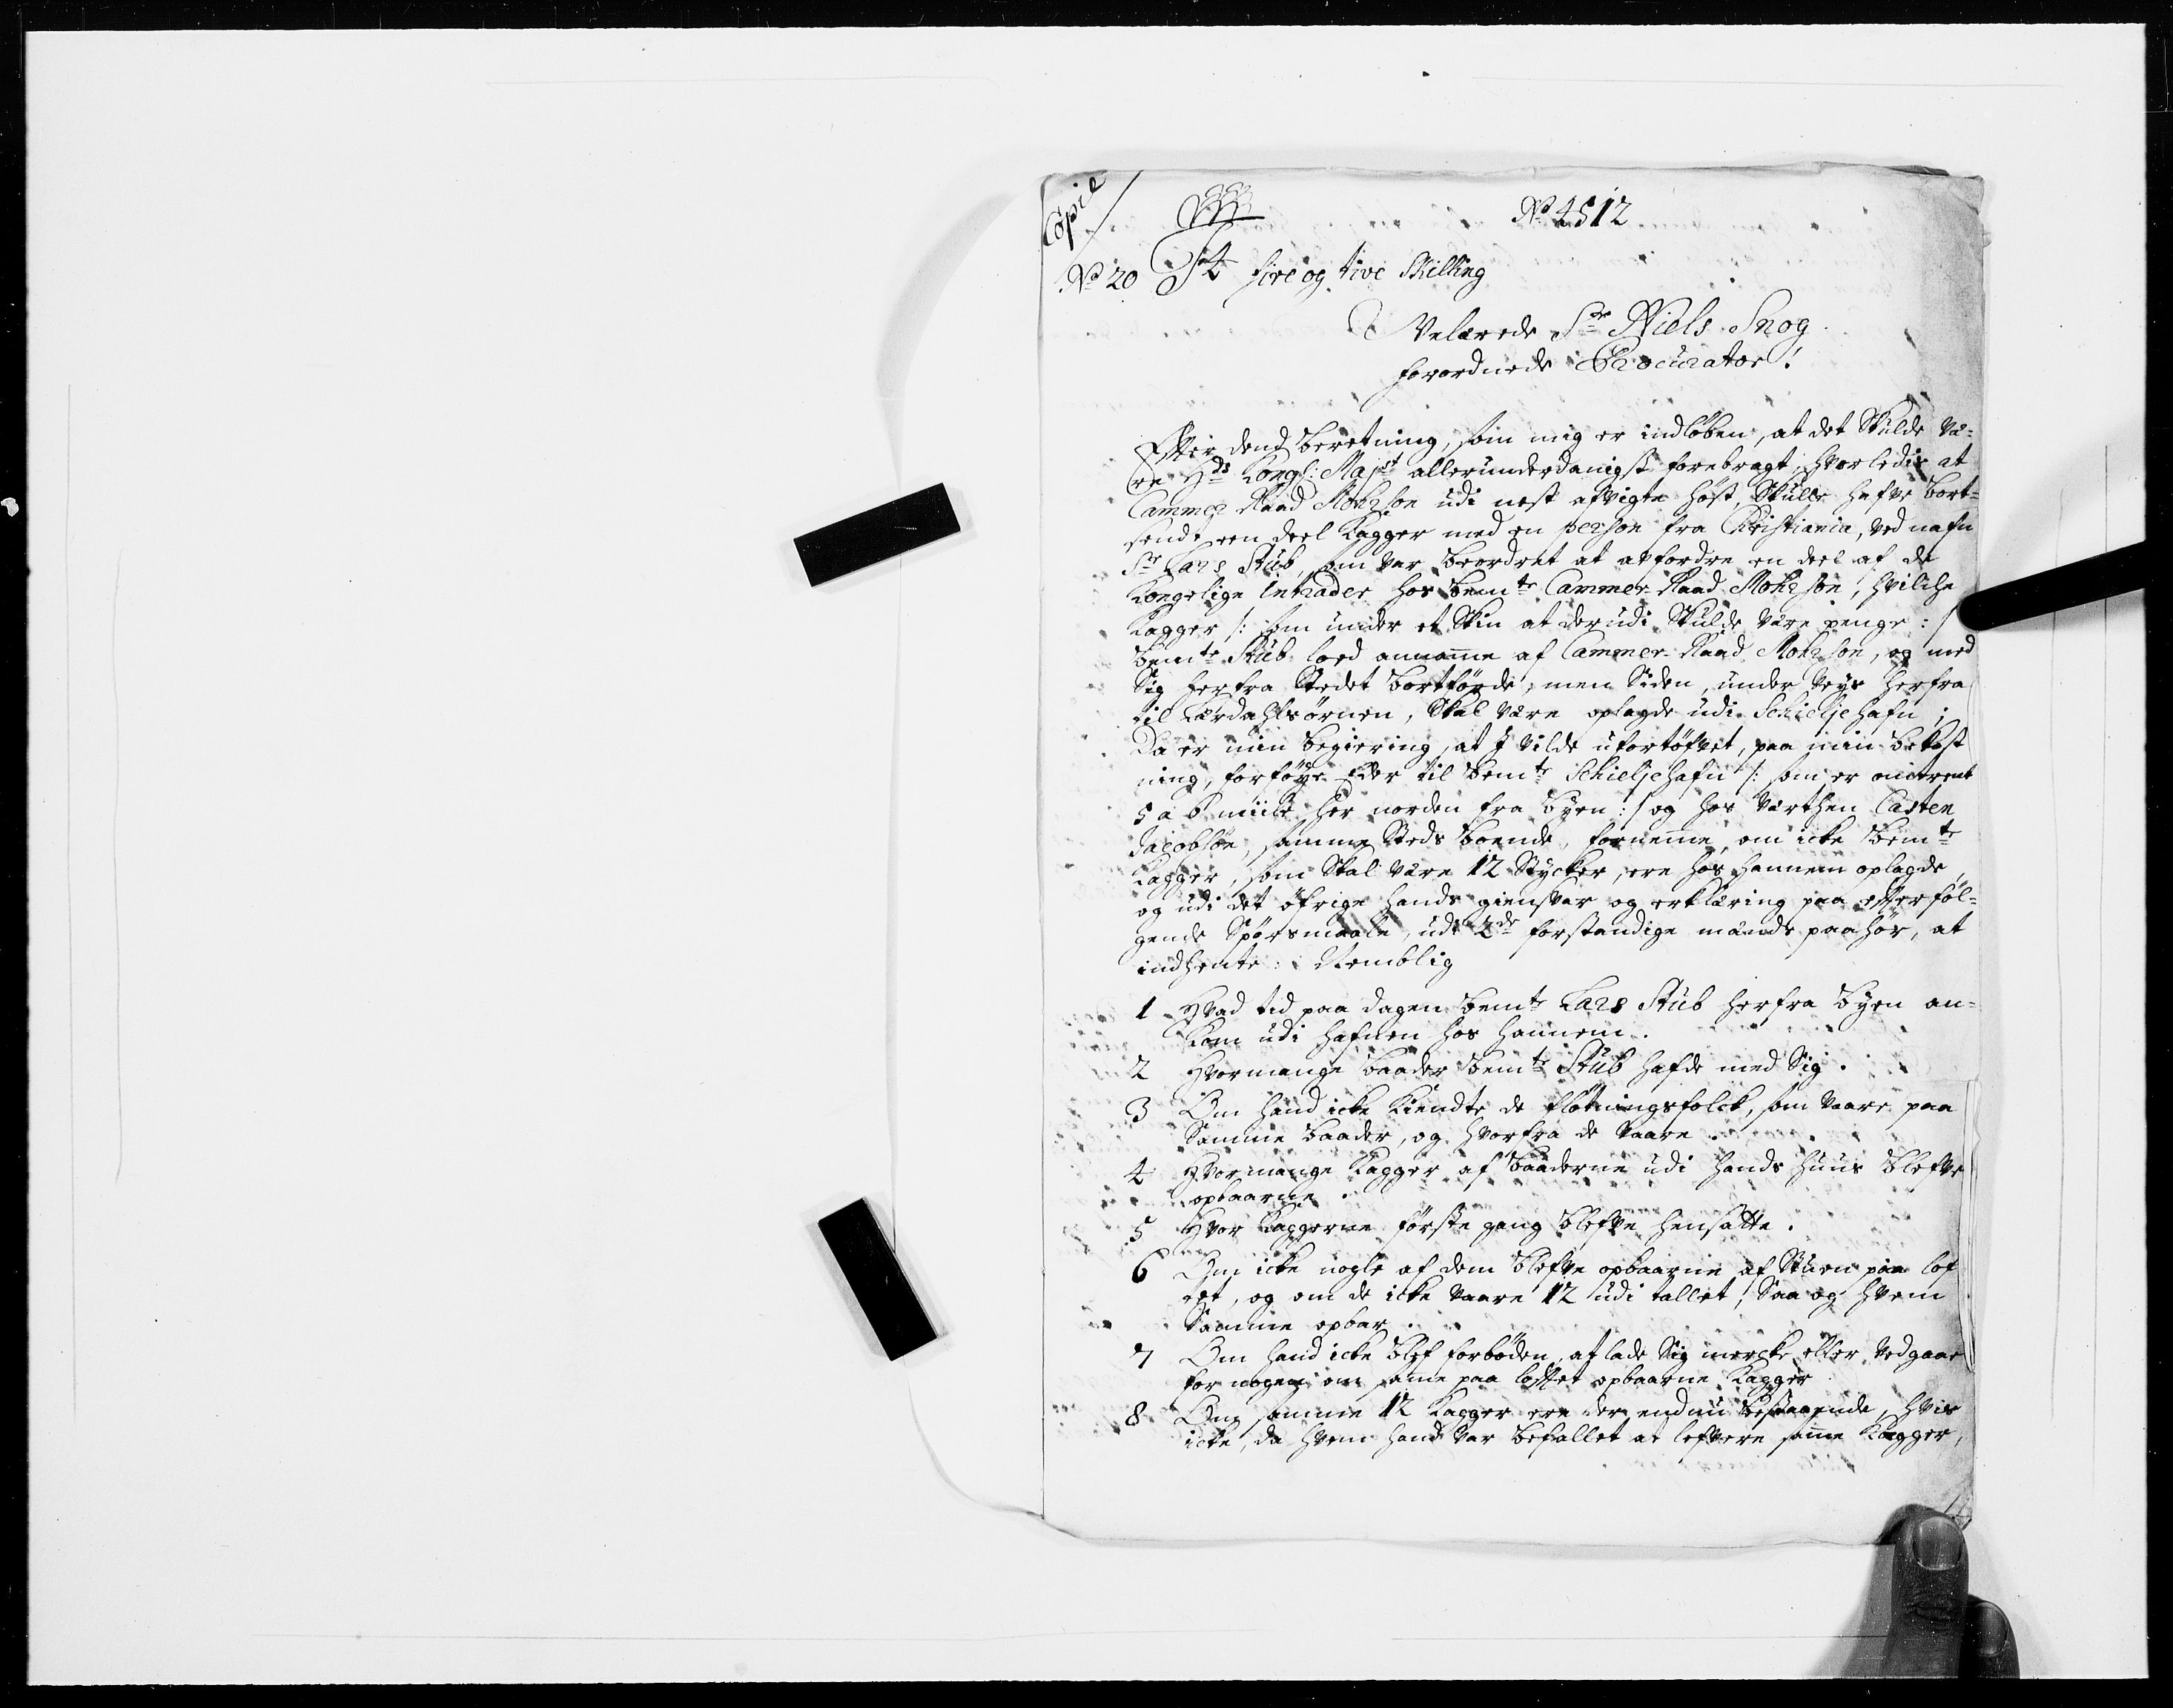 Copie
No 4512
No 20 24 fire og tive Skilling
Velærede Sr Niels Snog
forordnede Procurator!
Efter dend beretning, som mig er indløben, at det Skulde Væ=
re Hds Kongl: Majst allerunderdanigst forebragt, hvorledis at
Cammer Raad Mohrsøn udi nest afvigte høst, Skulle hafve bort=
sendt een deel Kagger med en person fra Christiania, ved nafn
Sr Lars Stub, som var beordret at affordre en deel af de
Kongelige intrader hos bemte Cammer Raad Mohrsøn, hvilche
Kagger /: som under et Skin at derudi Skulde være penge :/
bemte Stub loed annamme af Cammer-Raad Mohrsøn, og med
Sig herfra Stedet bortførde, men Siden, under Veys herfra
til Lærdahlsørnen, Skal være oplagde udi Schieljehafn;
Da er min begiering, at I vilde ufortøfvet, paa min bekost
ning, forføye Eder til bemte Schieljehafn /: som er omtrent
5 a 6 miile her norden fra byen :/ og hos Værthen Casten
Jacobsøn, samme Steds boende, fornemme, om icke bemte
Kagger, som Skal være 12 Stycker, ere hos hannem oplagde,
og udi det øfrige hands giensvar og erklæring paa efterføl=
gende Spørsmaale, udi 2de forstandige mænds paahør, at
indhente: Nemblig
1 Hvad tid paa dagen bemte Lars Stub herfra byen an=
kom udi hafnen hos hannem.
2 Hvormange baader bemte Stub hafde med Sig.
3 Om hand icke kiendte de fløtningsfolck, som vaare paa
Samme baader, og hvorfra de vaare.
4 Hvormange Kagger af baaderne udi hands huus blefve
opbaarne.
5 Hvor Kaggerne første gang blefve hensatte.
6 Om icke nogle af dem blefve opbaarne af Stuen paa lof
tet, og om de icke vaare 12 udi tallet, Saa og hvem
Samme opbar.
7 Om hand icke blef forboden, at lade Sig mercke eller Vedgaae
for nogen om samme paa loftet opbaarne Kagger
8 Om samme 12 Kagger ere der endnu bestaaende, hvis
icke, da hvem hand var befallet at lefvere samme Kagger,